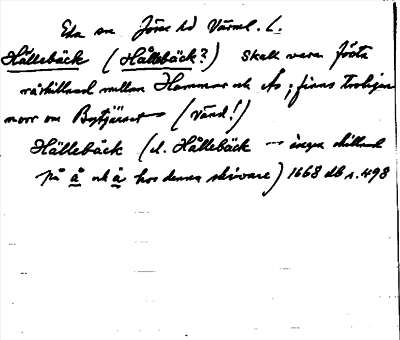 Eda sn Jösse hd Värml. l.
Hällebäck (Hållebäck?) Skall vara första
råskillnad mellan Hammar och Ås; finns troligen
norr om Bogtjärnet (vänd!)
Hällebäck (el. Hållebäck — ingen skillnad
på ä och å hos denna skrivare) 1668 db s. 498